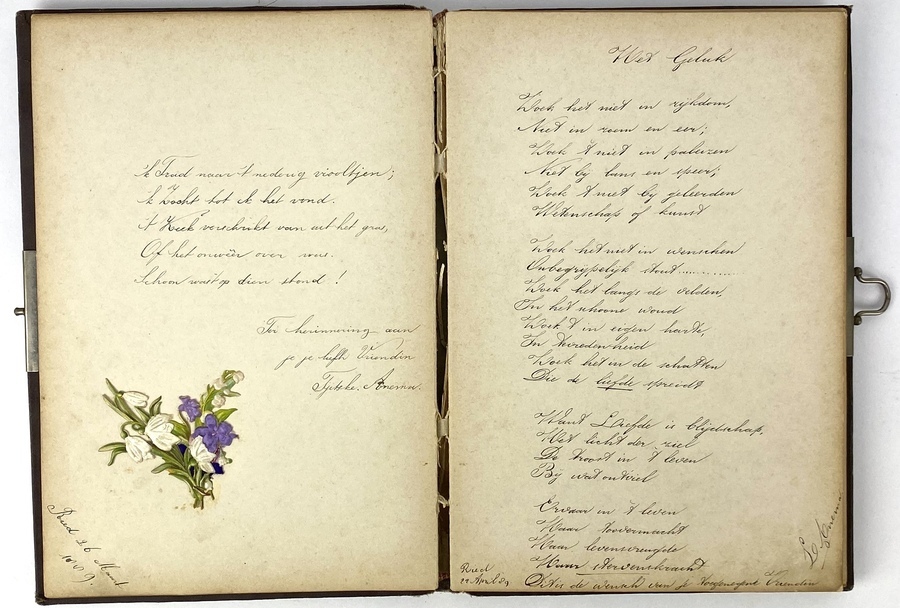 Ik Trad naar 't nederig viooltjen;
Ik Zocht tot ik het vond.
't Keek verschrikt van uit het gras,
Of het onweêr over was.
Schoon was 't op dien stond!
Ter herinnering aan
je je liefh Vriendin
Tjitske. Anema.
Ried 26 Maart
Het Geluk
Zoek het niet in rijkdom,
Niet in roem en eer;
Zoek 't niet in paleizen
Niet bij lans en speer;
Zoek 't niet bij geleerden
Wetenschap of kunst
Zoek het niet in wenschen
Onbegrijpelijk stout............
Zoek het langs de velden,
In het schoone woud
Zoek 't in eigen harte,
In tevredenheid
Zoek het in de schatten
Die de liefde spreidt
Want Liefde is blijdschap,
Het licht der ziel
De troost in 't leven
Bij wat ontviel
Ervaar in 't leven
Haar toovermacht
Haar levensvreugde
Haar stervenskracht
Dit is de wensch van je Vriendin
Ried
Anema